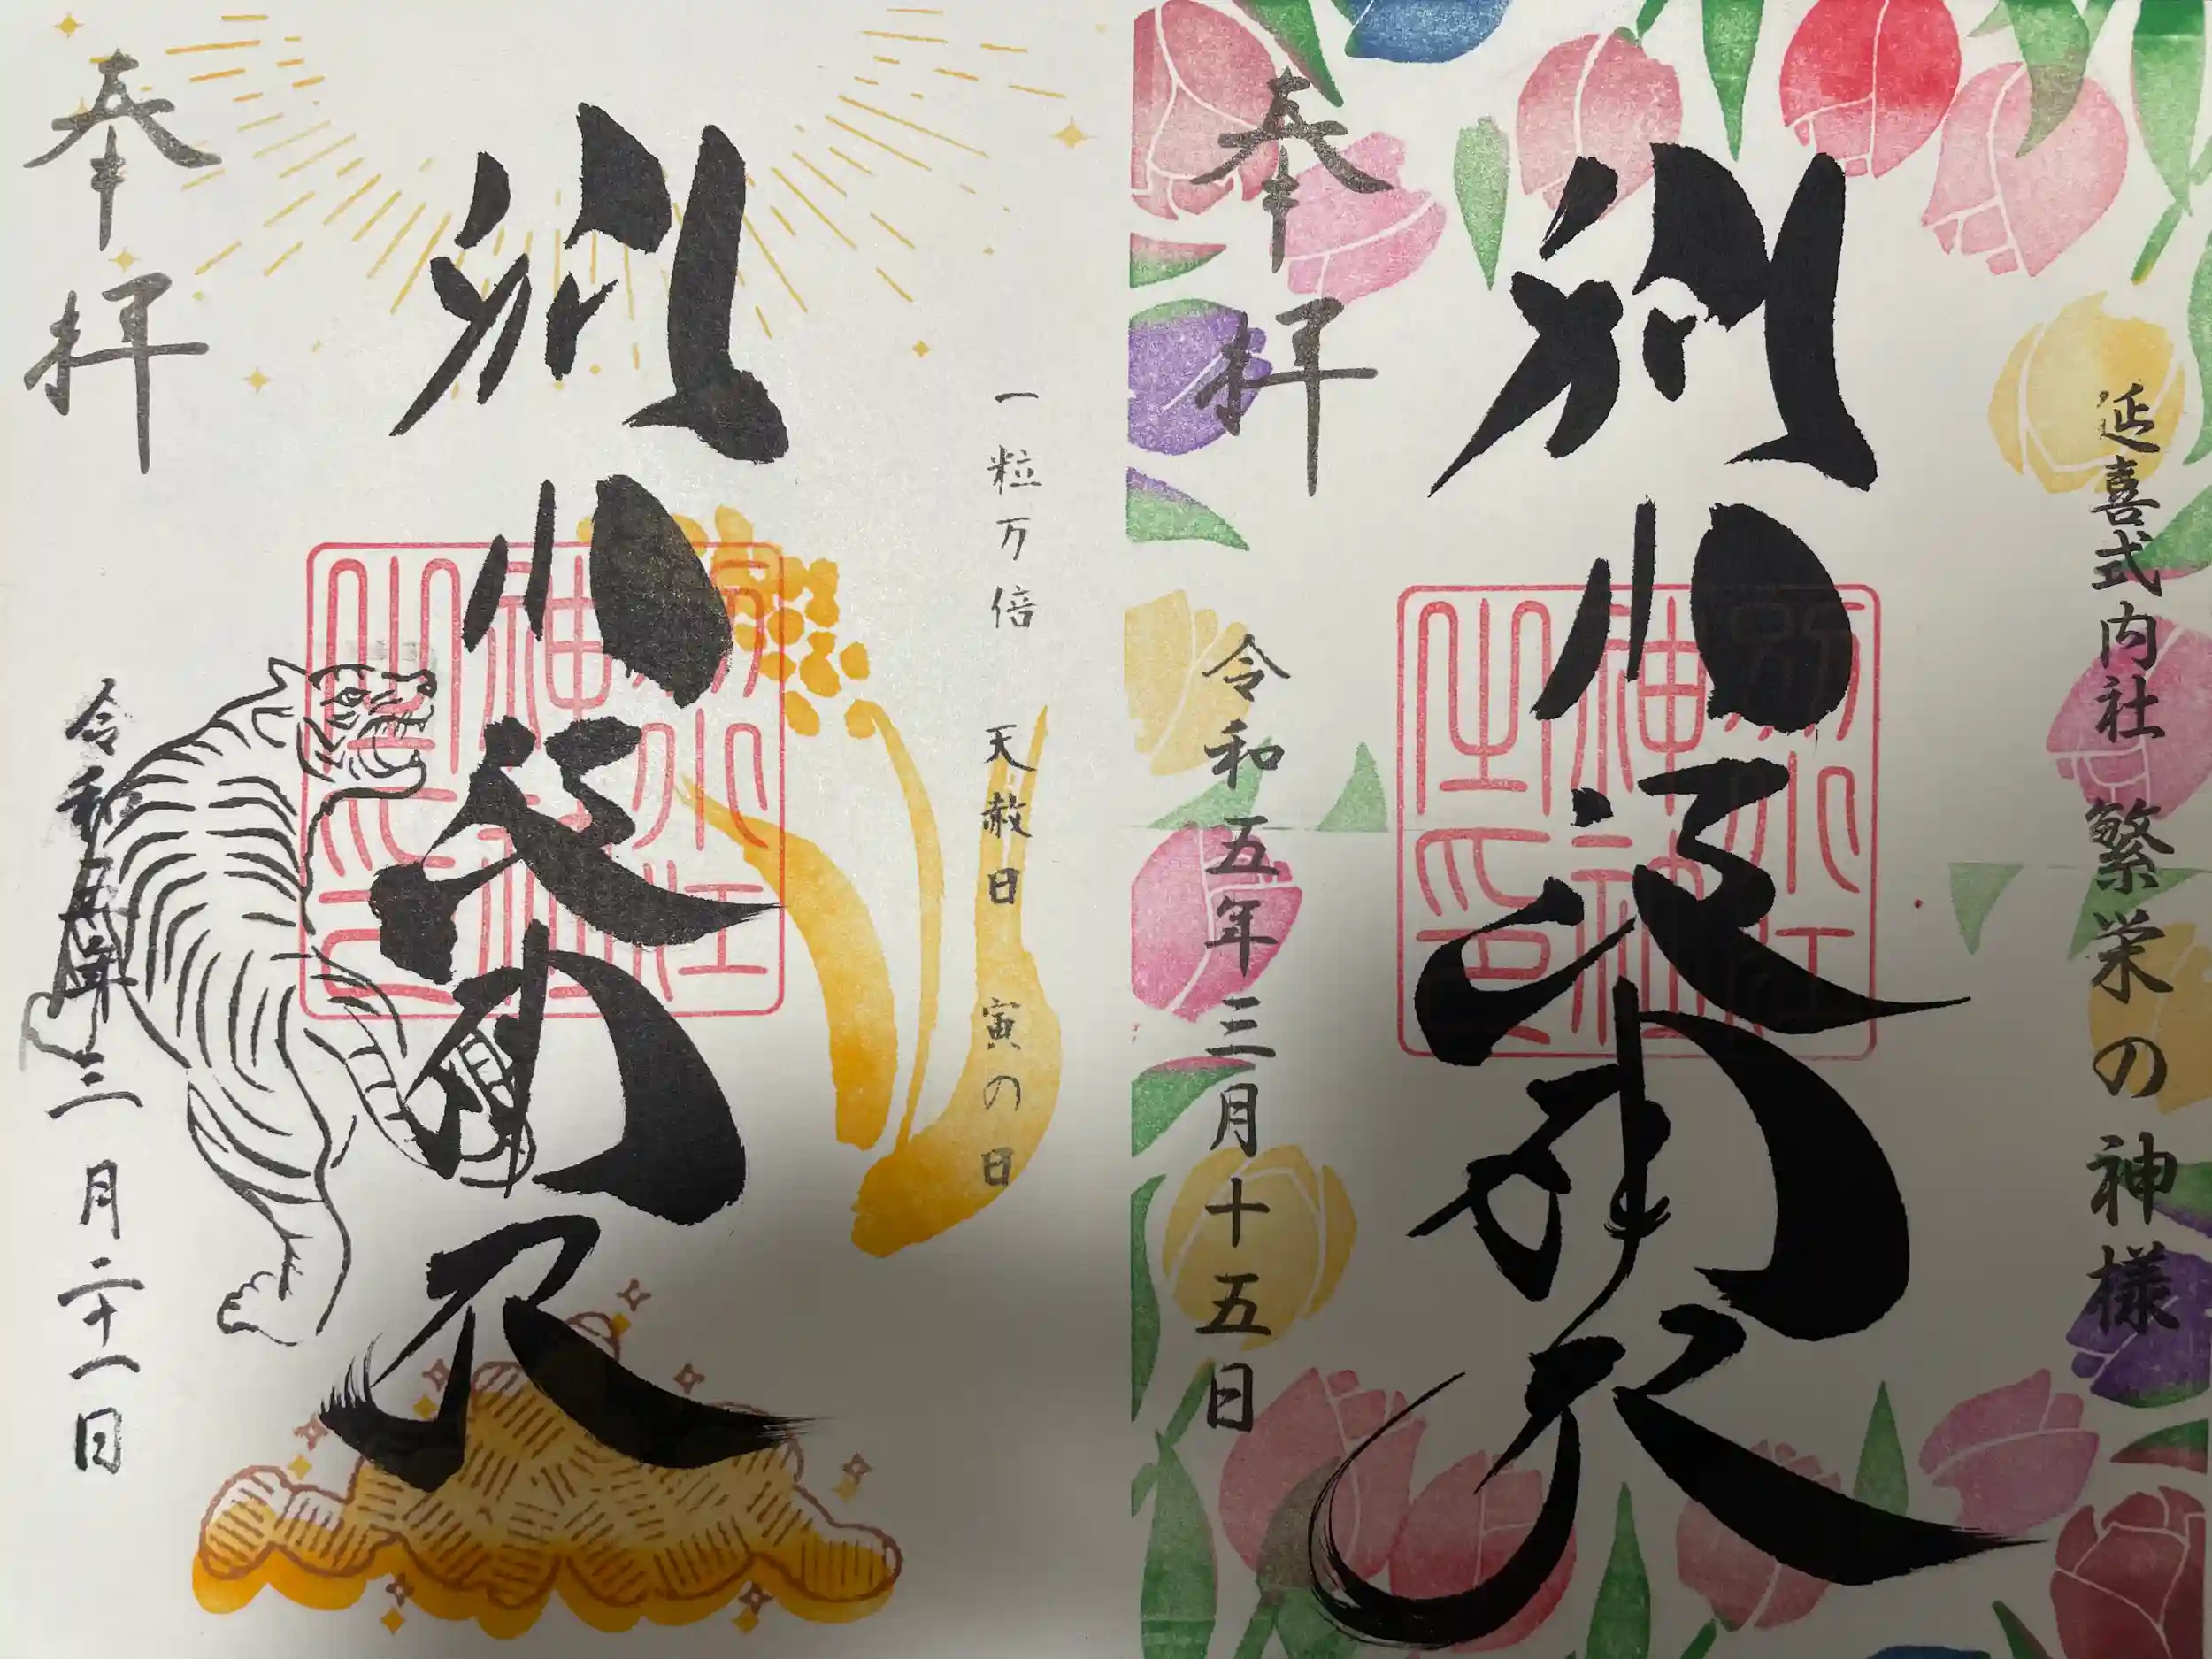 延喜式内社 繁栄の神様
別小江神社
別小江
神社
之印
奉拝
令和五年三月十五日
一粒万倍 天赦日 寅の日
別小江神社
別小江
神社
之印
奉拝
令和五年三月二十一日